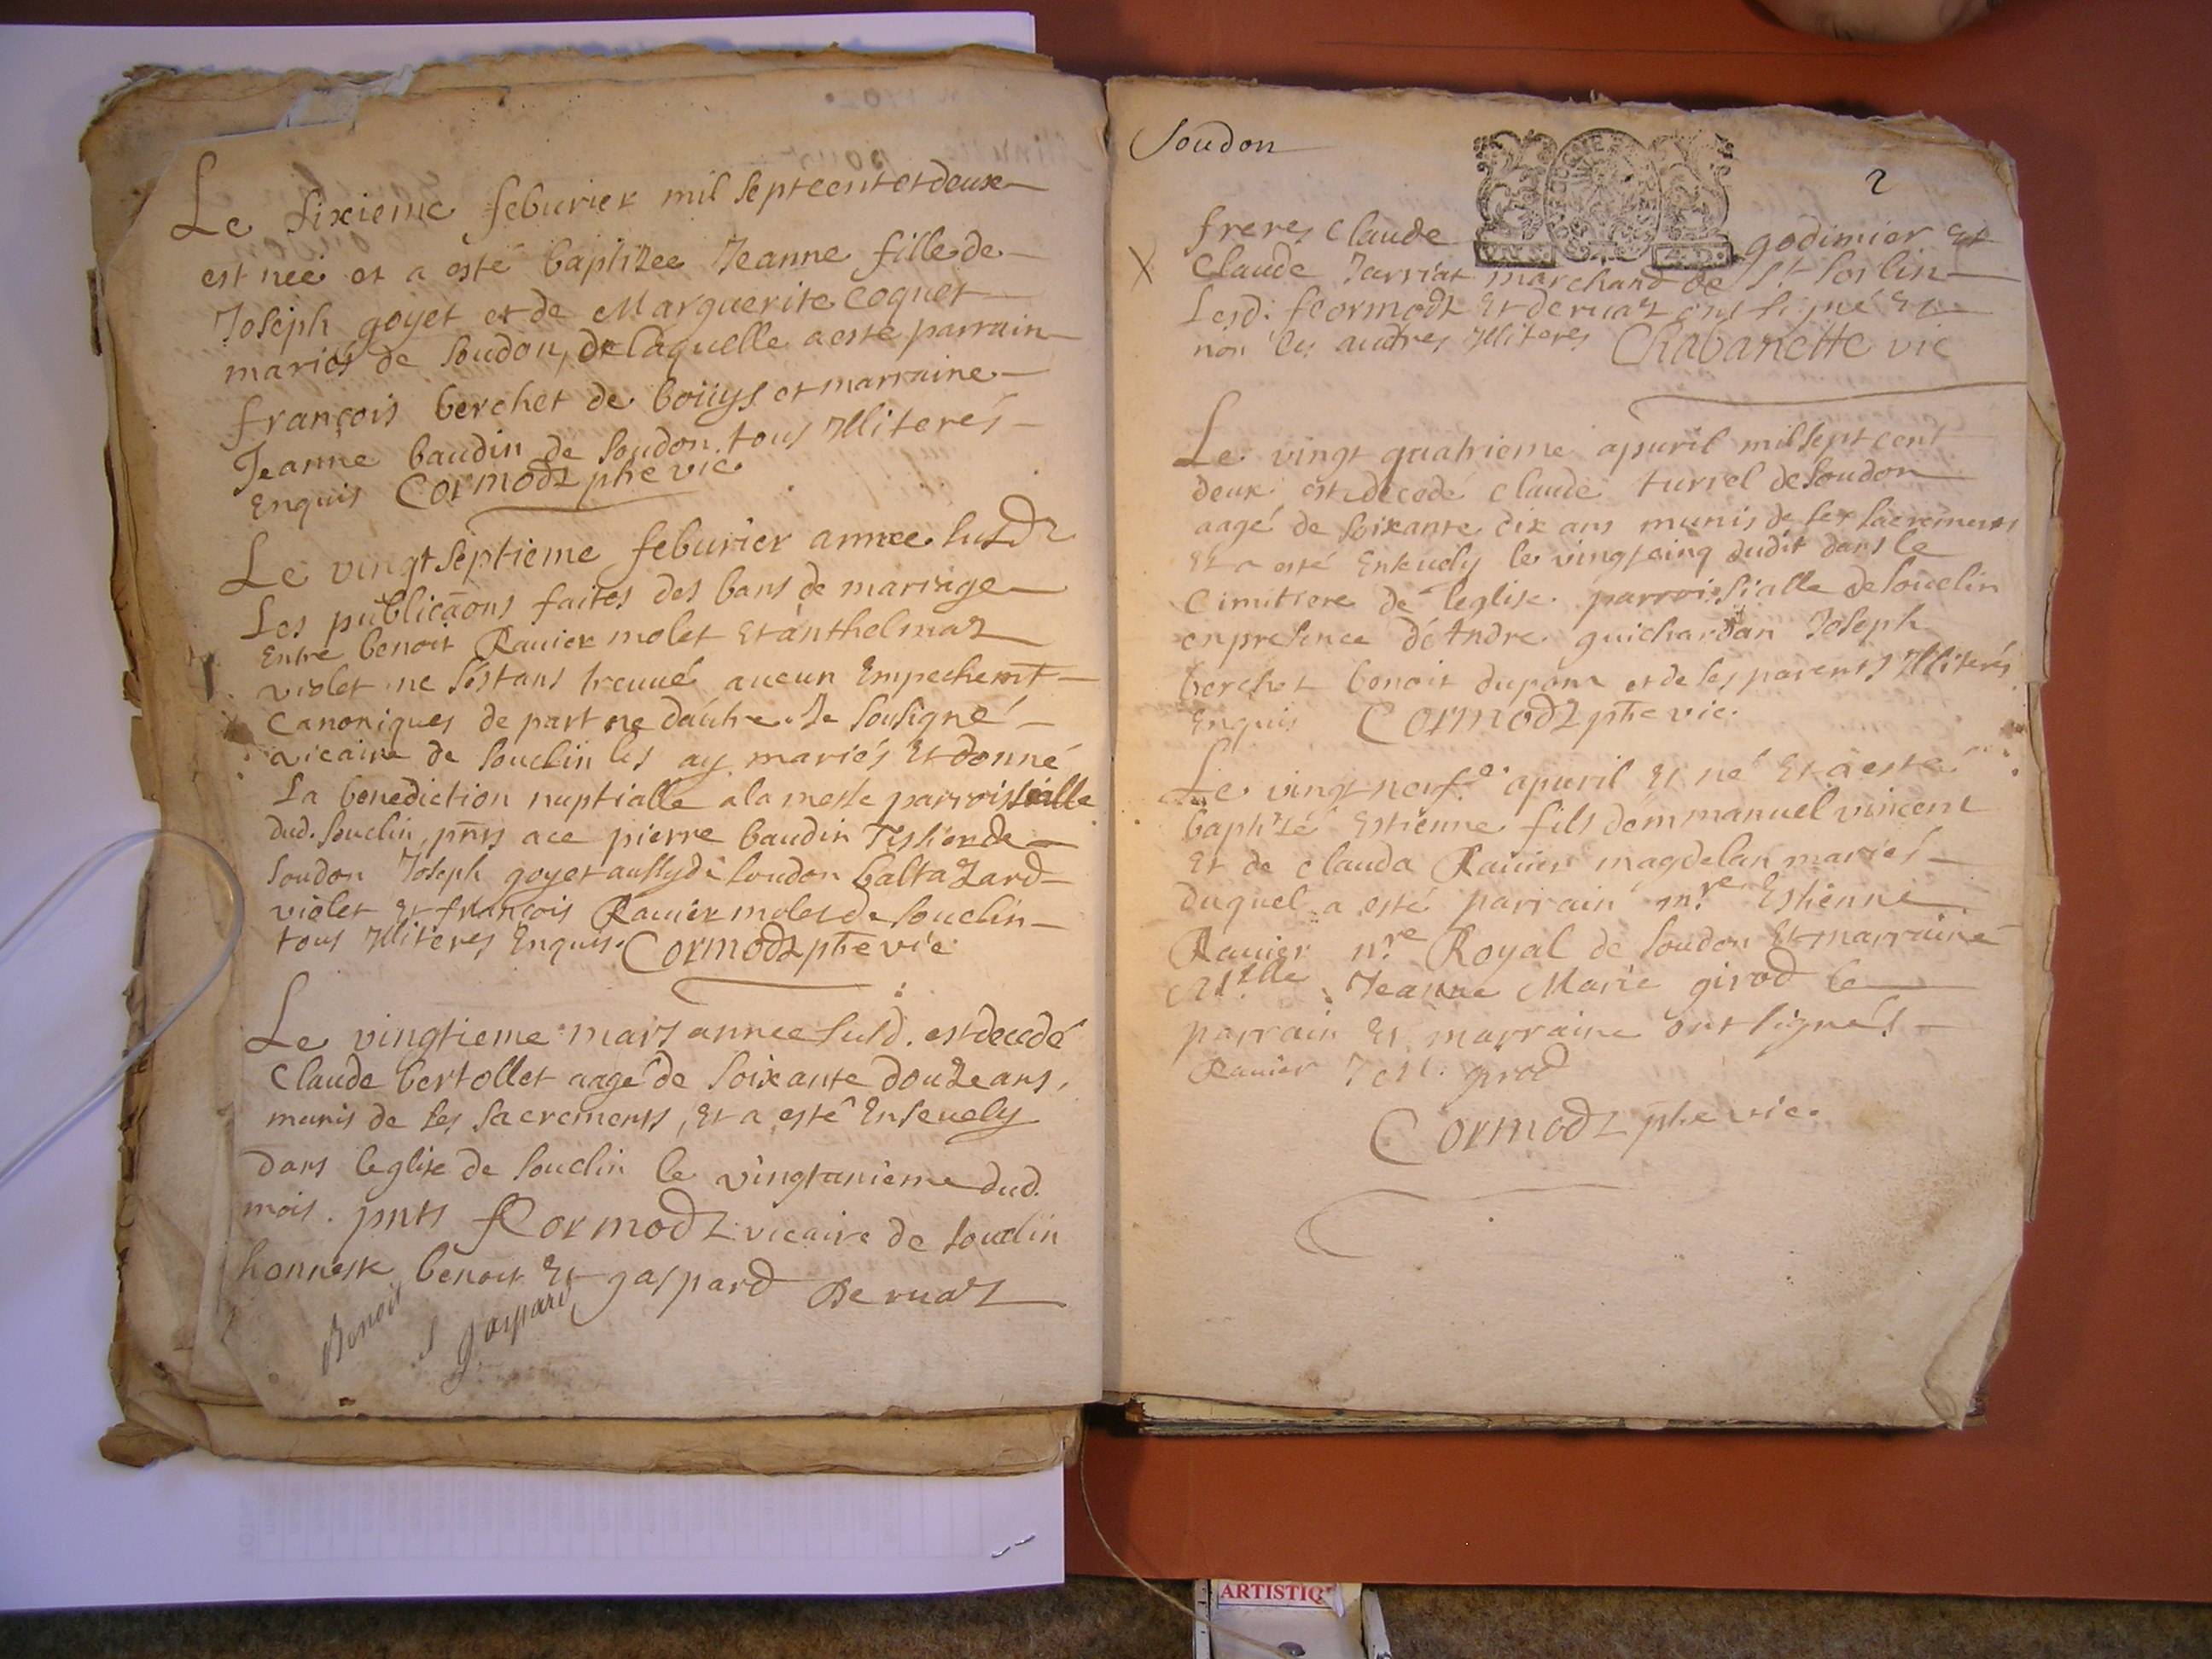 Le sixieme feburier mil septcent et deux
est neé et a esté baptizee Jeanne fille de
Joseph goyet et de Marguerite coquet
mariés de soudon, de laquelle a esté parrain
françois berchet de boüys et marraine
Jeanne baudin de soudon. tous Illiterés
Enquis Cormodz pbre vic.
Le vingt septieme feburier annee susd.
Les publicaons faites des bans de mariage
Entre benoit Rauier molet Et anthelmaz
violet ne s'estans treuué aucun Empechemt
Canoniques de part ne dautre. Je sousigné
vicaire de souclin les ay mariés Et donné
La benediction nuptialle a la messe parroissialle
dud. souclin, pnts a ce pierre baudin Tissier de
soudon Joseph goyet aussy de soudon baltazard
violet Et françois Rauier molet de souclin
tous Illiteres Enquis. Cormodz pbre vic
Le vingtieme mars annee susd. est decedé
Claude bertollet aagé de soixante douze ans,
munis de ses sacrements, Et a esté Enseuely
dans leglise de souclin le vingtunieme dud.
mois. pnts f Cormodz vicaire de souclin
honneste benoit Et gaspard Deruaz
Benoit
s gaspard
Soudon
2
freres Claude godinier Et
X Claude Jarriat marchand de St. Sorlin
Lesd. f Cormodz Et deruaz ont signé Et
non les autres Illiteres Chabanette vic
Le vingt quatrieme apuril mil sept cent
deux est decedé Claude turrel de Soudon
aagé de soixante dix ans munis de ses sacrements
Et a esté Enseuely le vingtcinq dudit dans le
Cimitiere de leglise parroissialle de Souclin
en presence d'Andre guichardan Joseph
berchet benoit dupont et de ses parents Illiterés
Enquis Cormodz pbre vic.
Le vingt neufe. apuril Et né Et a esté
baptizé Estienne fils demmanuel vincent
Et de clauda Rauier magdelan mariés
duquel a esté parrain mre. Estienne
Rauier nre. Royal de soudon Et marraine
Jeanne Marie girod le
parrain Et marraine ont signés
Rauier girod
Cormodz pbre vic.
ARTISTIQ